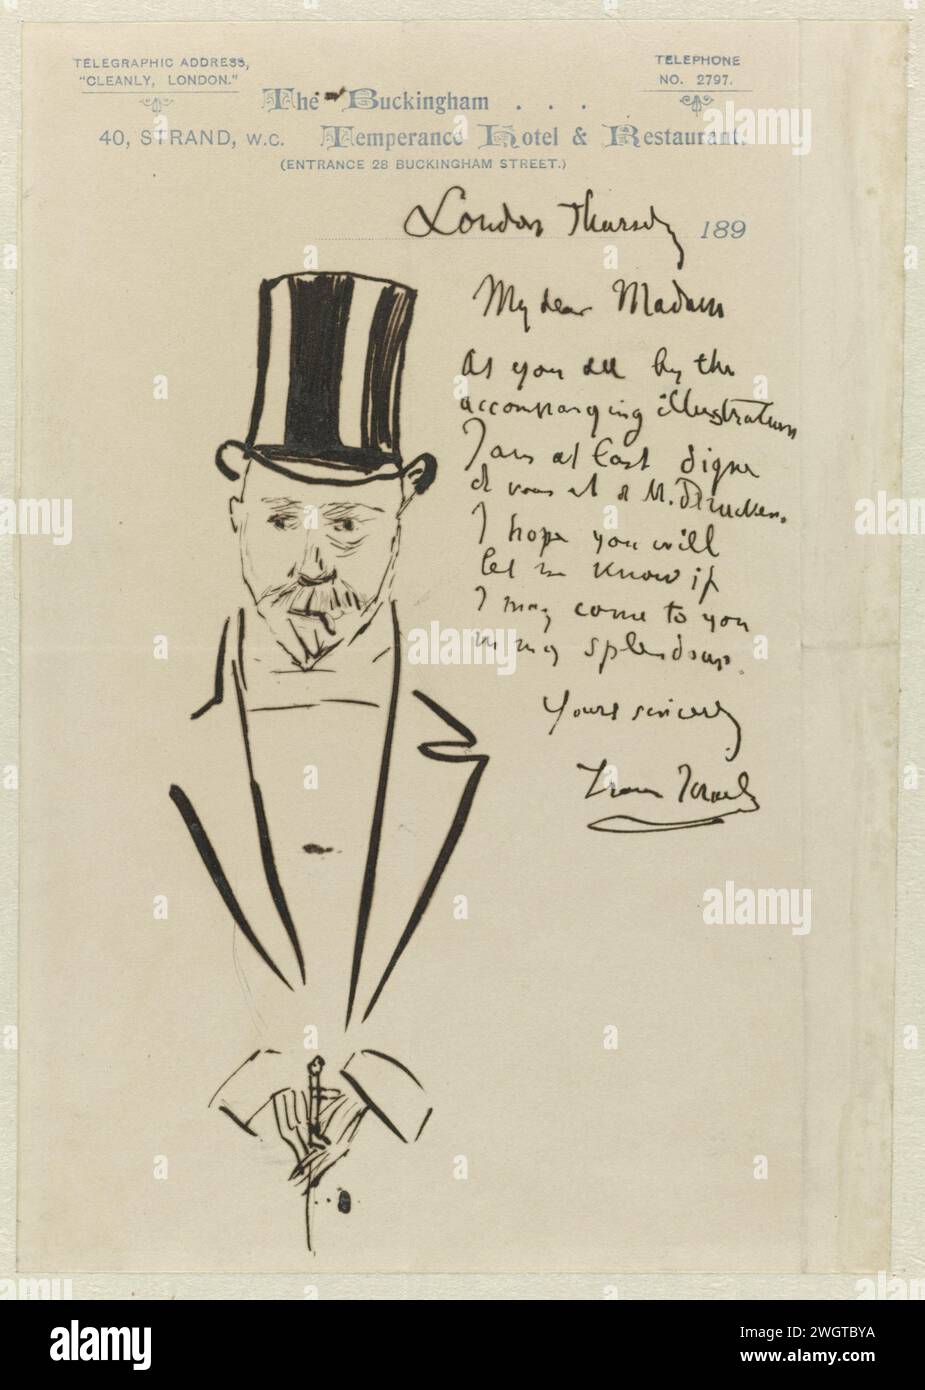 TELEGRAPHIC ADDRESS,
"CLEANLY, LONDON."
TELEPHONE
NO. 2797.
The Buckingham . . .
40, STRAND, W.C. Temperance Hotel & Restaurant.
(ENTRANCE 28 BUCKINGHAM STREET.)
London Thursdy 189
My dear Madam
As you see by the
accompanying illustration
I am at last digne
de vous et de M. Drucker.
I hope you will
let me know if
I may come to you
in my splendour.
Yours sincerely
Isaac Israels
alamy
Image ID: 2WGTBYA
www.alamy.com